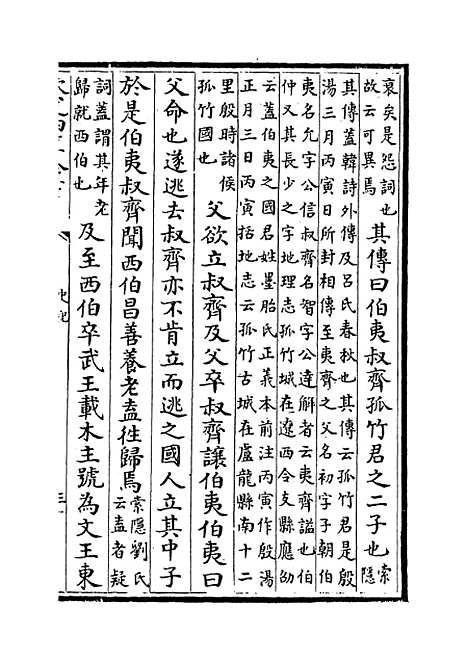 哀矣是怨詞也
故云可異焉
其傳曰伯夷叔齊孤竹君之二子也
索
隱
其傳蓋韓詩外傳及呂氏春秋也其傳云孤竹君是殷
湯三月丙寅日所封相傳至夷齊之父名初字子朝伯
夷名允字公信叔齊名智字公達解者云夷齊謚也伯
仲又其長少之字地理志孤竹城在遼西令支縣應劭
云蓋伯夷之國君姓墨胎氏正義本前注丙寅作殷湯
正月三日丙寅括地志云孤竹古城在盧龍縣南十二
里殷時諸候
孤竹國也
父欲立叔齊及父卒叔齊讓伯夷伯夷曰
父命也遂逃去叔齊亦不肯立而逃之國人立其中子
於是伯夷叔齊聞西伯昌善養老盍徃歸焉
索隱劉氏
云盍者疑
詞蓋謂其年老
歸就西伯也
及至西伯卒武王載木主號為文王東
史記